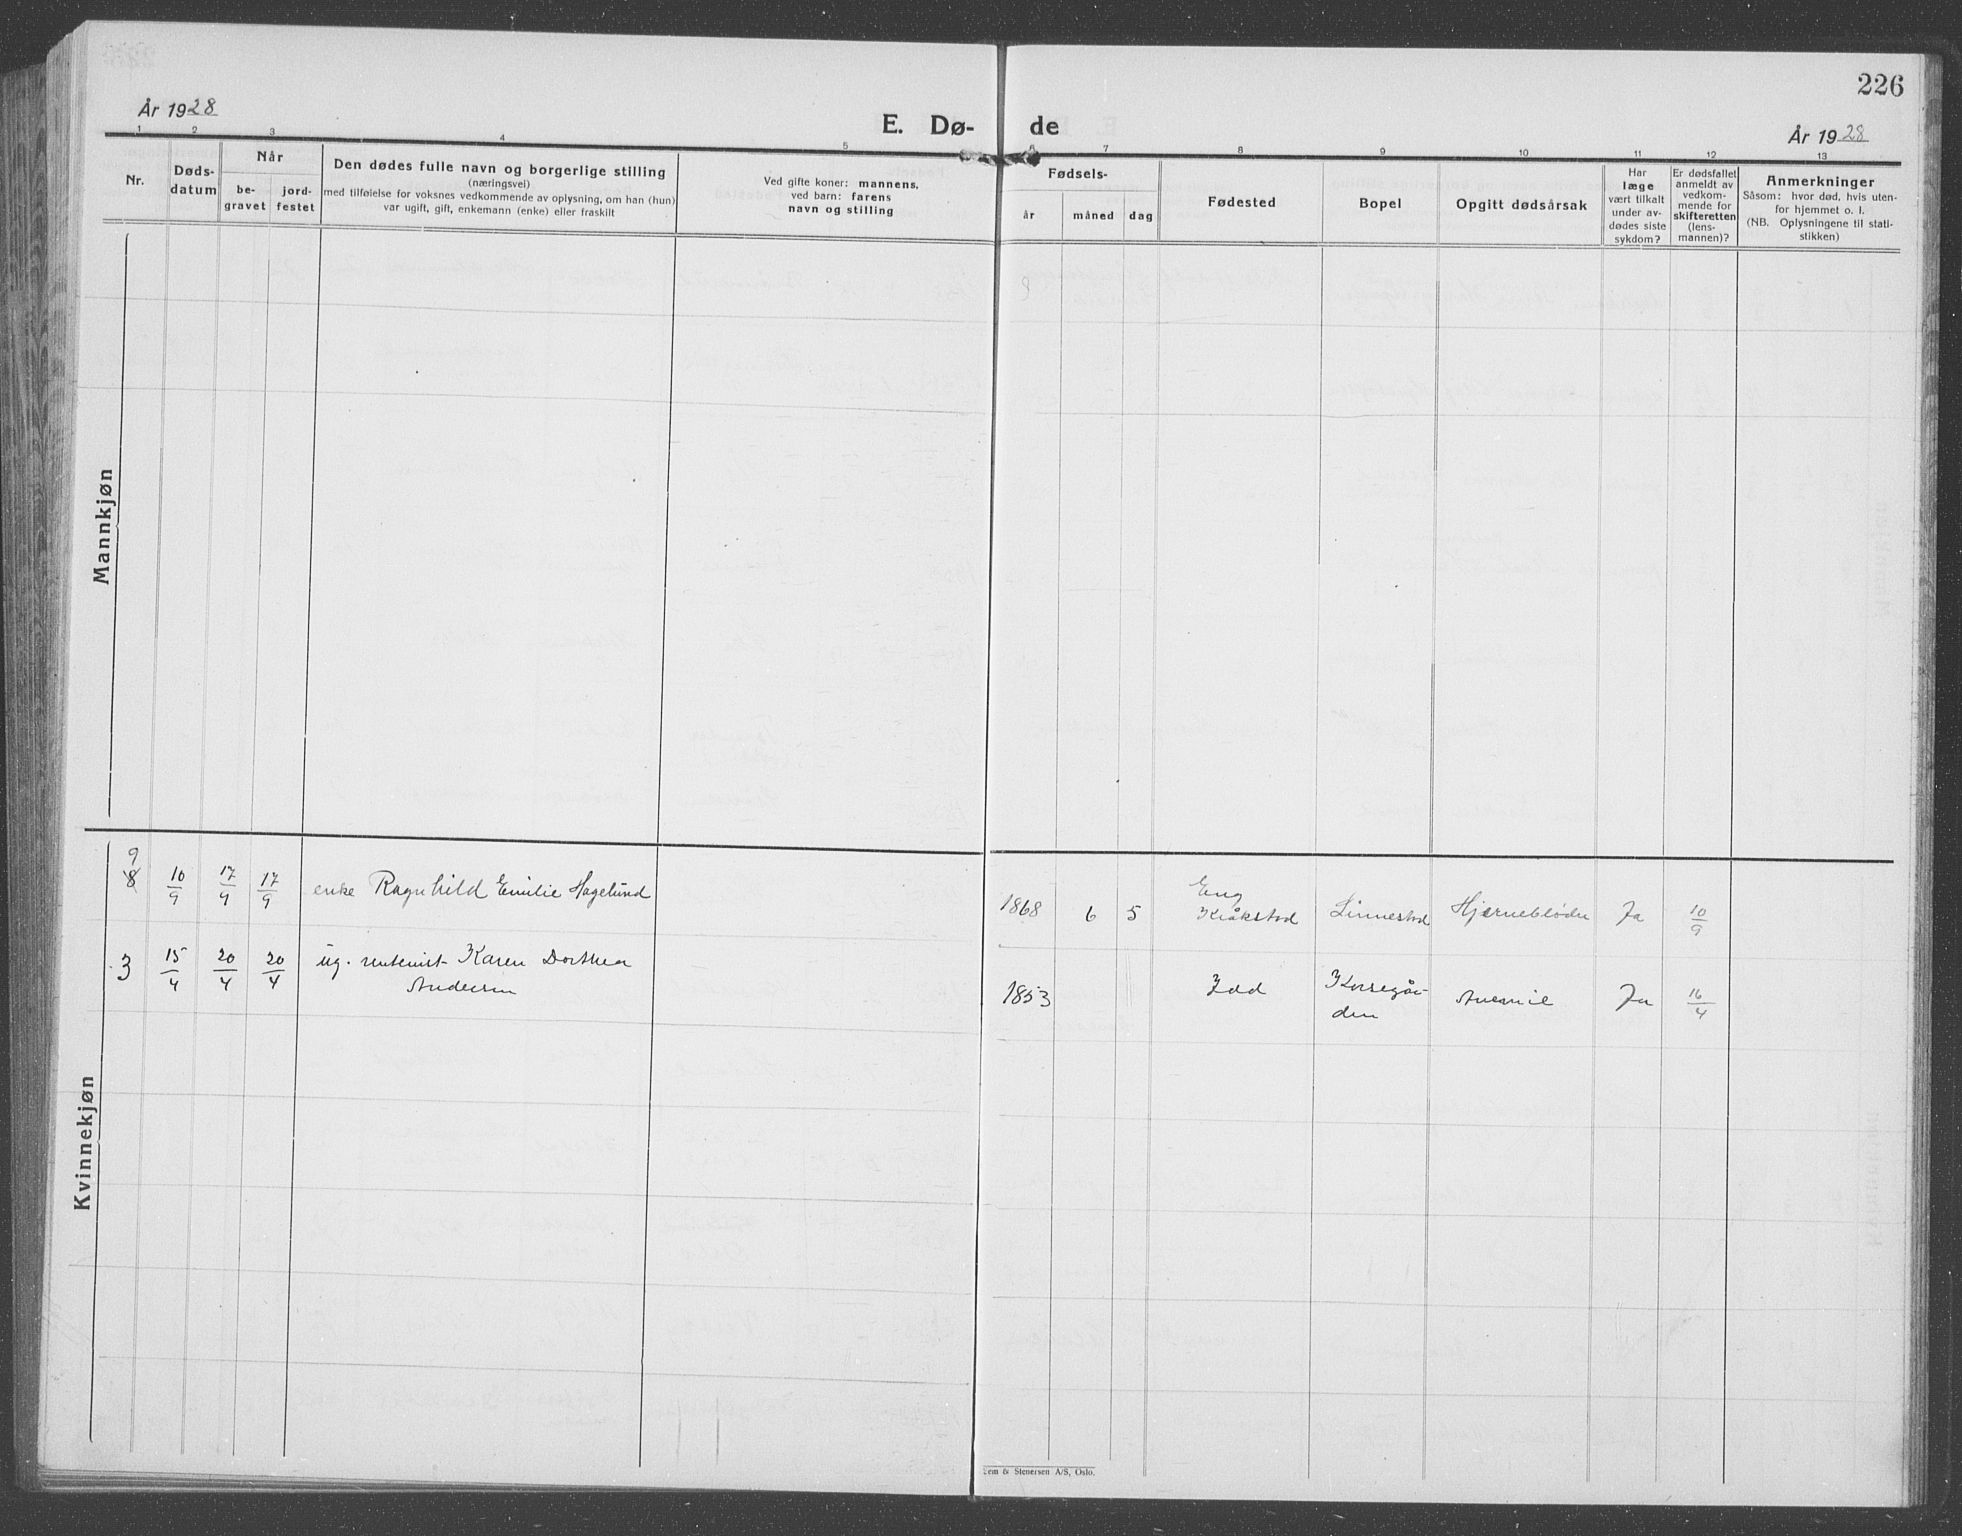 226
År 1928
E. Dø-
de
År 1928
1 2 3 4 5 6 7 8 9 10 11 12 13
Nr.
Døds-
datum
Når
be-
gravet
jord-
festet
Den dødes fulle navn og borgerlige stilling
(næringsvei)
med tilføielse for voksnes vedkommende av oplysning, om han (hun)
var ugift, gift, enkemann (enke) eller fraskilt
Ved gifte koner: mannens,
ved barn: farens
navn og stilling
Fødsels-
år
måned
dag
Fødested
Bopel
Opgitt dødsårsak
Har
læge
vært tilkalt
under av-
dødes siste
sykdom?
Er dødsfallet
anmeldt av
vedkom-
mende for
skifteretten
(lens-
mannen)?
Anmerkninger
Såsom: hvor død, hvis uten-
for hjemmet o. l.
(NB. Oplysningene til stati-
stikken)
Mannkjøn
Kvinnekjøn
9
8 10/9 17/9 17/9 enke Ragnhild Emilie Hagelund 1868 6 5 Eng
Kråkstad Linnestad Hjerneblødn Ja 10/9
3 15/4 20/4 20/4 ug. rentenist Karen Dorthea
Andersen
1853 Idd Korsegår-
den Anemie Ja 16/4
Lem & Stenersen A/S, Oslo.